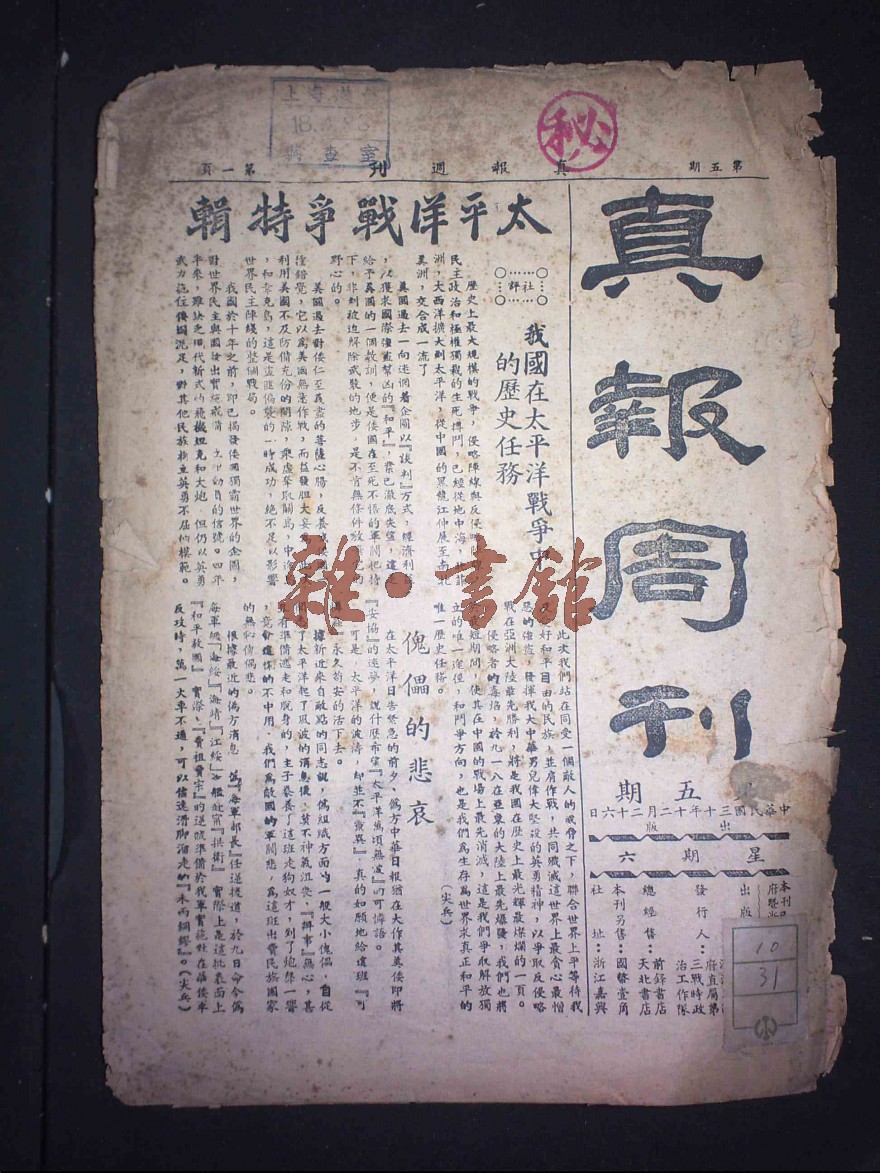 第五期
真報週刊
第一頁
秘
真報周刊
五期
中華民國三十年十二月二十六日
出版
星期六
發行人：三戰時政
治工作隊
總經售：前鋒書店
天北書店
本刊另售：國幣壹角
社址：浙江嘉興
10
31
太平洋戰爭特輯
社評
我國在太平洋戰爭中
的歷史任務
歷史上最大規模的戰爭，侵略陣線與反侵略
民主政治和極權獨裁的生死搏鬥，已經從地中海
洲，大西洋擴大到太平洋，從中國的黑龍江伸展至南
美洲，交合成一流了
英國過去一向迷惘着企圖以『談判』方式，經濟利
，以獲求國際強盜幫凶的『和平』，業已澈底失望，這是
給予英國的一個教訓，便是倭國在至死不悟的軍閥把持
下，非到被迫解除武裝的地步，是不肯無條件放
野心的。
美國過去對倭仁至義盡的菩薩心腸，反養成
種錯覺，它以為美國無意作戰，而益發胆大妄
利用美國不及防備充份的間隙，乘虛奪取關島，中途
，和韋克島，這是盜匪偏襲的一時成功，絕不足以影響
世界民主陣綫的整個戰局。
我國於十年之前，即已揭發倭國獨霸世界的企圖，
對世界民主與國發出實施戒備
動員的信號。四年
半來，雖缺乏現代新式的飛機坦克和大炮
但仍以英勇
武力拖住倭國泥足，對其他民族樹立英勇不屈的模範。
此次我們站在同受一個敵人的威脅之下，聯合世界上平等待我
好和平自由的民族，並肩作戰，共同殲滅這世界上最貪心最憎
惡的強盜，發揮我大中華男兒偉大堅毅的英勇精神，以爭取反侵略
戰在亞洲大陸最先勝利，將是我國在歷史上最光輝最燦爛的一頁。
侵略者的毒焰，於九一八在亞東的大陸上最先爆發，我們也將
短期間，使其在中國的戰場上最先消滅，這是我們爭取解放獨
立的唯一途徑，和鬥爭方向，也是我們為生存為世界求真正和平的
唯一歷史任務。
（尖兵）
傀儡的悲哀
在太平洋日告緊急的前夕，偽方中華日報猶在大作其英倭即將
『妥協』的迷夢
說什麼希望『太平洋萬頃無波』的可憐語。
可是，太平洋的波濤，却並不
真的如願地給這班『可
永久苟安的活下去。
據新近來自敵點的同志說，偽組織方面的一般大小傀儡，自從
了太平洋起了風波的消息後，莫不神氣沮喪，『辦事』無心，甚
有準備逃走和脫身的，主子豢養了這班走狗奴才，到了炮聲一響
，竟會這樣的不中用，我們為敵國的軍閥悲，為這班出賣民族國家
的無恥偽偶悲。
根據最近的偽方消息
偽『海軍部長』任逆援道，於九日命令偽
海軍艦『海綏』『海靖』『江綏』
實際上是這批表面上
『和平救國』實際『賣祖賣宗』的逆號準備於我軍實施駐在華倭軍
反攻時，萬一火車不通，可以借達滑脚溜走的『未雨綢繆』。（尖兵）
雜·書館